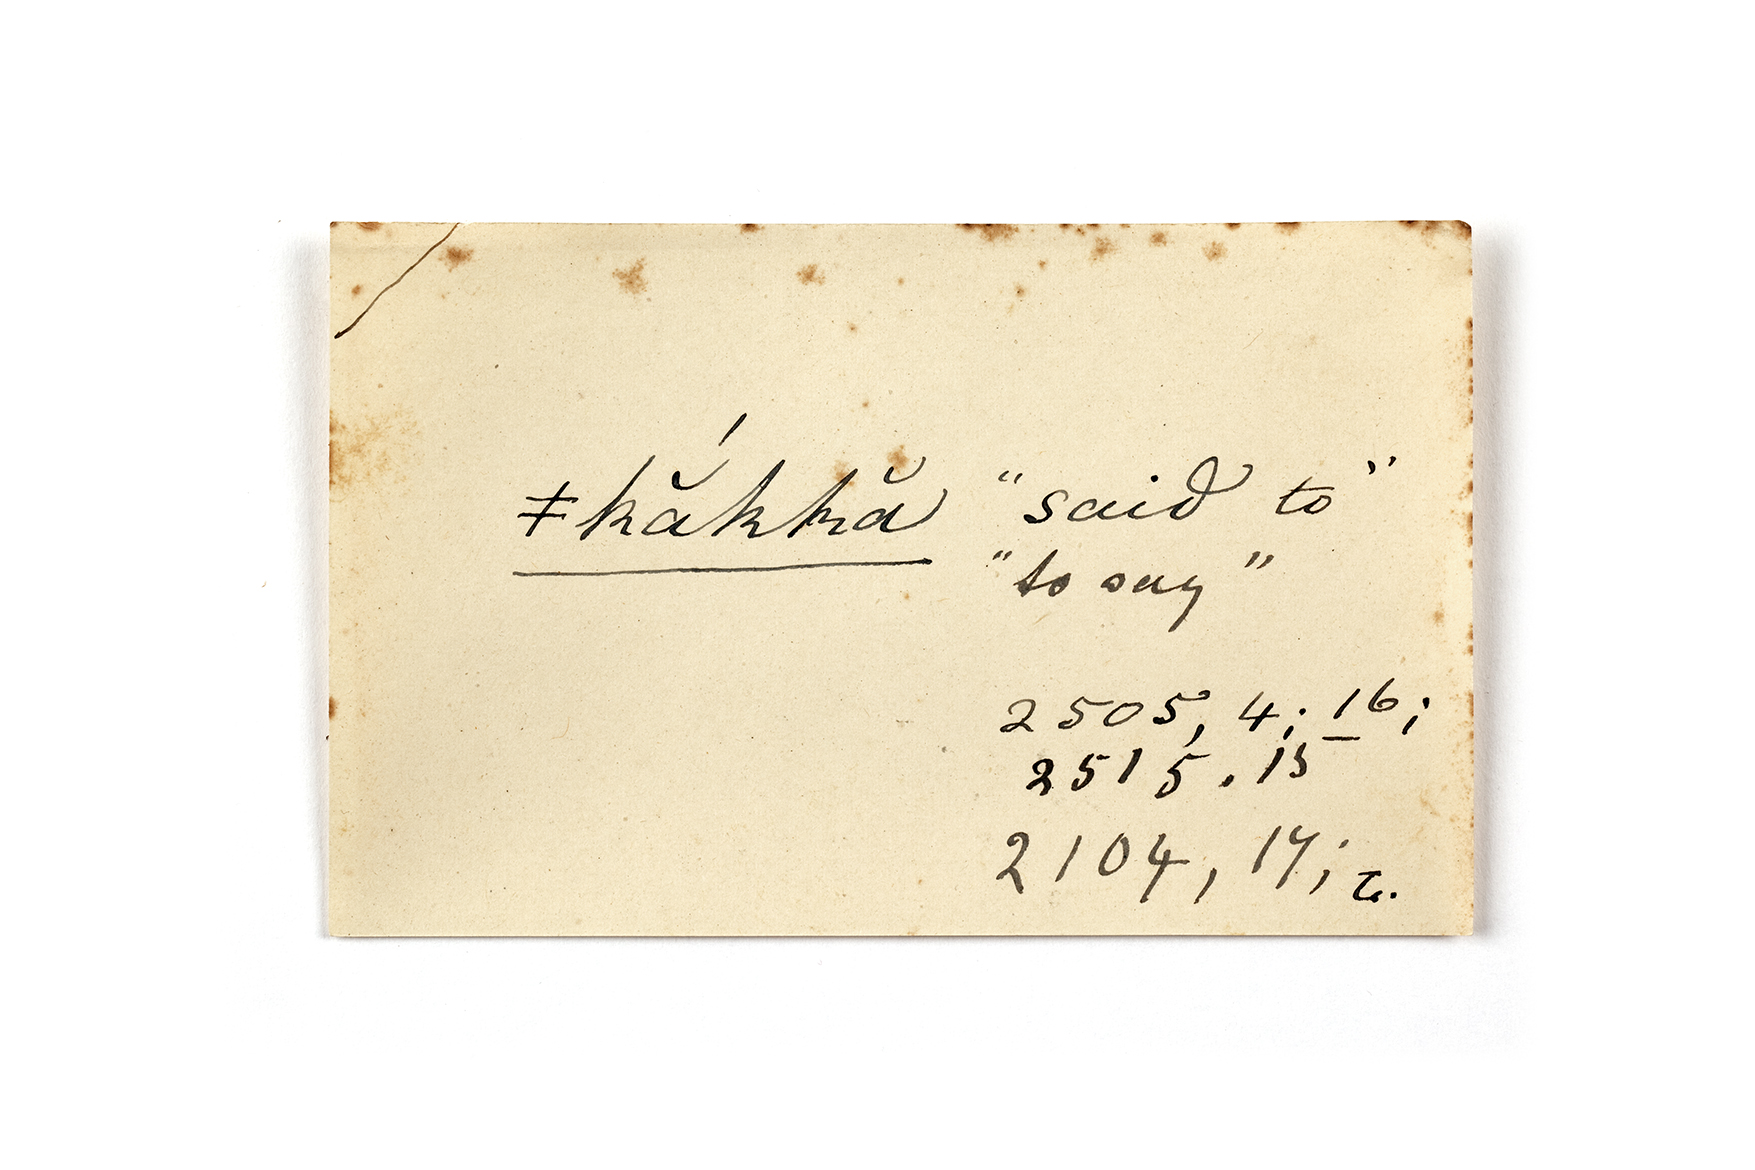 ǂkắkkă "said to"
"to say"
2505, 4; 16;
2515. 15
2104, 17;